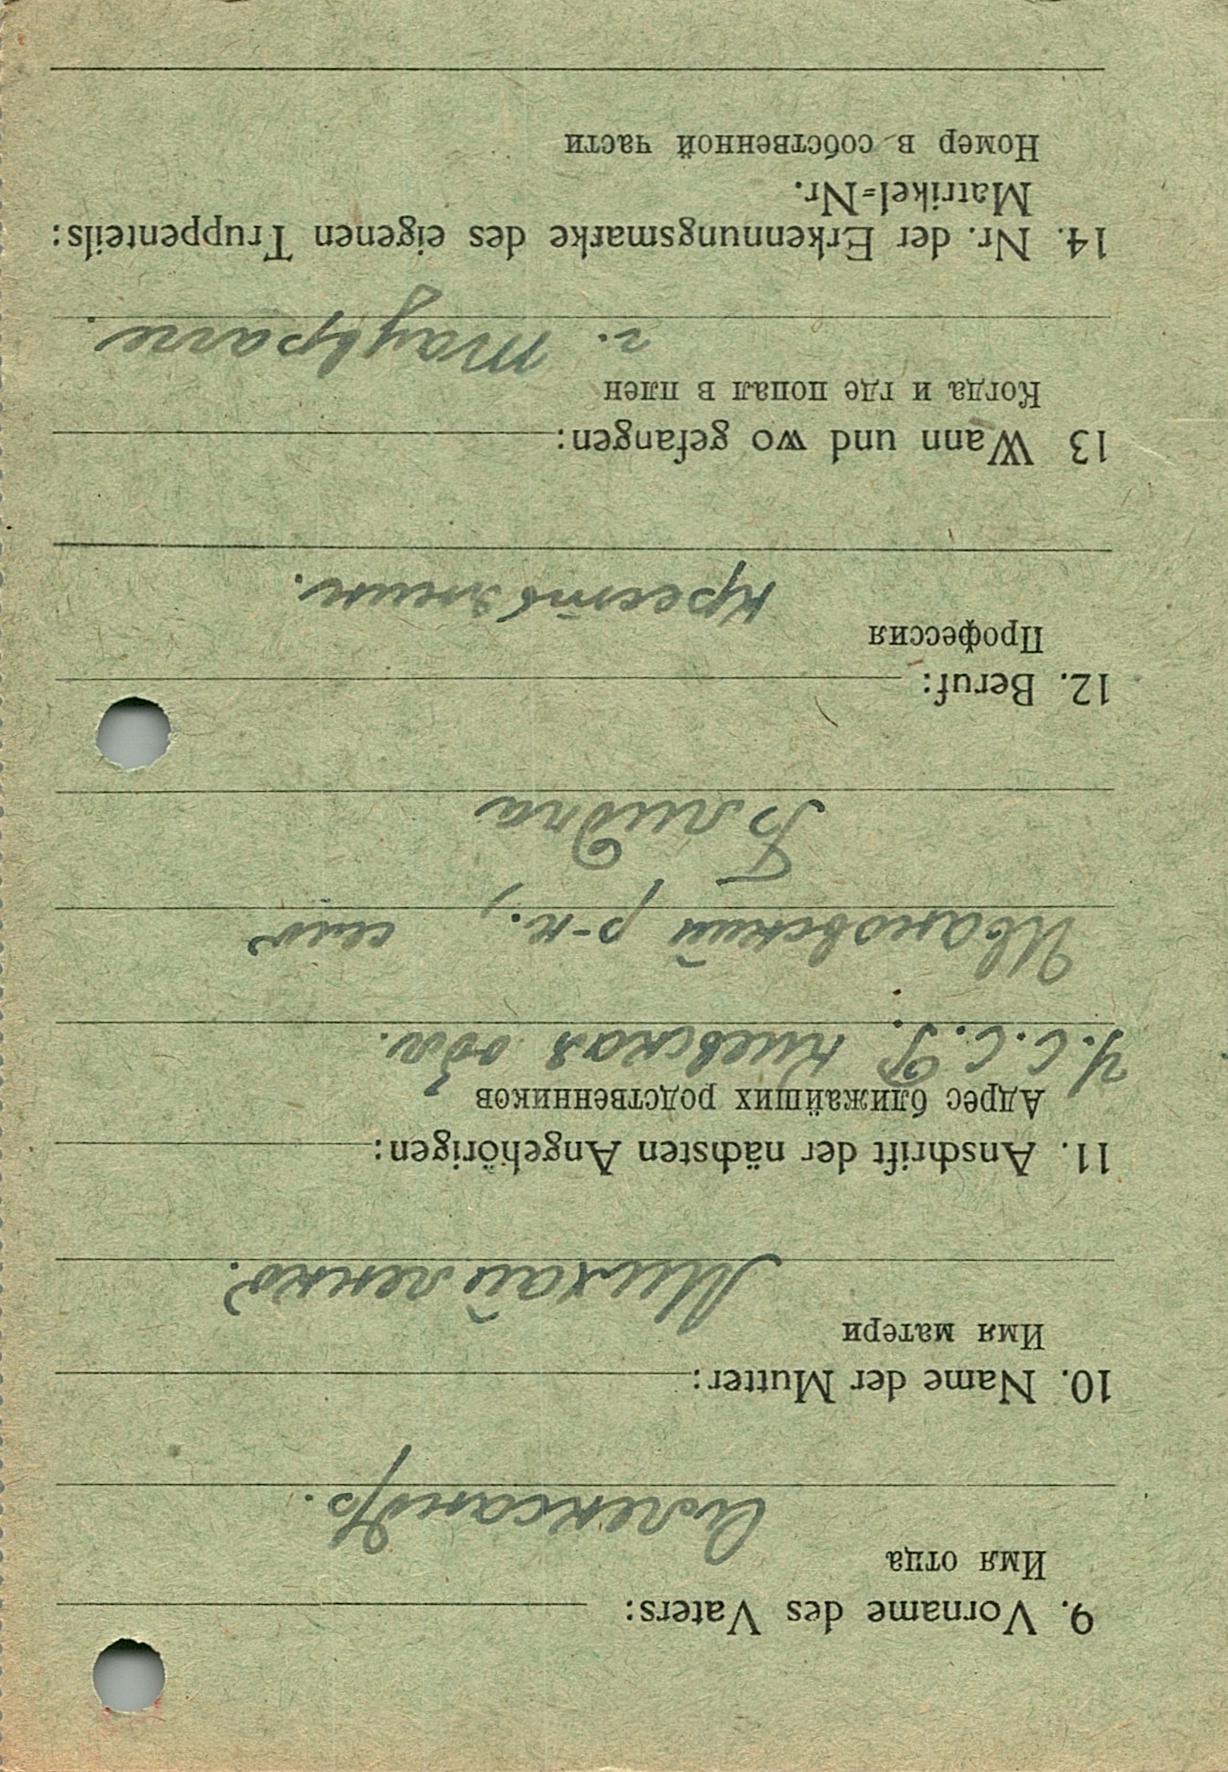 9. Vorname des Vaters:
Имя отца
Александр.
10. Name der Mutter:
Имя матери
Михайленко.
11. Anschrift der nächsten Angehörigen:
Адрес ближайших родственников
У.С.С.Р. Киевская обл.
Ивановский р-н., село
12. Beruf:
Профессия
крестьянин.
13 Wann und wo gefangen:
Когда и где попал в плен
г. Таувраге
14. Nr. der Erkennungsmarke des eigenen Truppenteils:
Matrikel=Nr.
Номер в собственной части